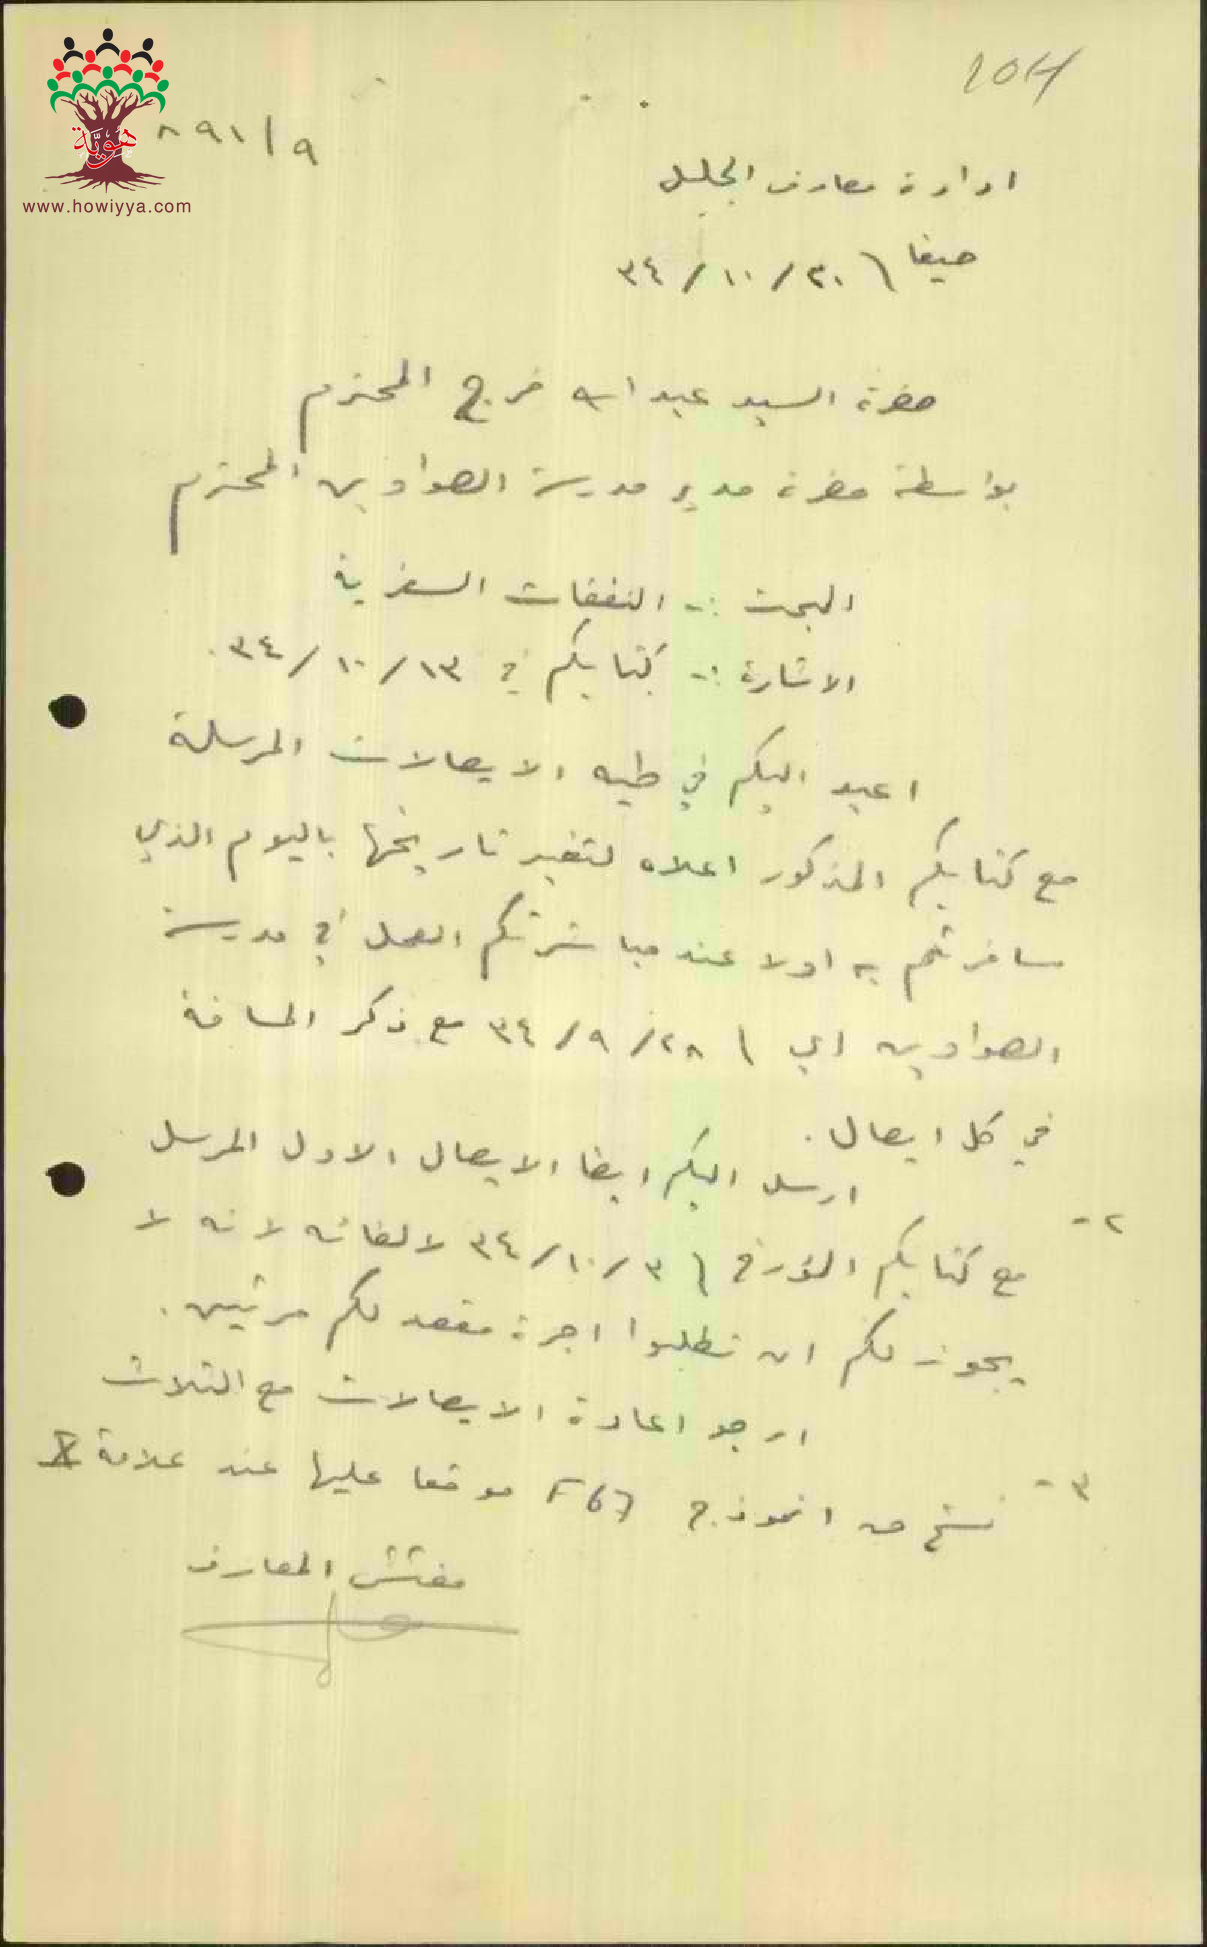 104
هوية
www.howiyya.com
٨٩١/٩
ادارة معارف الجليل
حيفا \ ٢٠/١٠/٣٤
حضرة السيد عبد الله فرج المحترم
بواسطة حضرة مدير مدرسة الصوادين المحترم
البحث :- النفقات السفرية
الاشارة :- كتابكم في ١٣/١٠/٣٤.
اعيد اليكم في طيه الايصالات المرسلة
مع كتابكم المذكور اعلاه لتغير تاريخها باليوم الذي
سافرتم به اولا عند مباشرتكم العمل في مدرسة
الصوادين اي \ ٢٨/٩/٣٤ مع ذكر المسافة
في كل ايصال.
٢- ارسل اليكم ايضا الايصال الاول المرسل
مع كتابكم المؤرخ \ ٣/١٠/٣٤ لالغائه لانه لا
يجوز لكم ان تطلبوا اجرة مقعد لكم مرتين.
٣- ارجو اعادة الايصالات مع الثلاث
نسخ من انموذج F67 موقعا عليها عند علامة X
مفتش المعارف